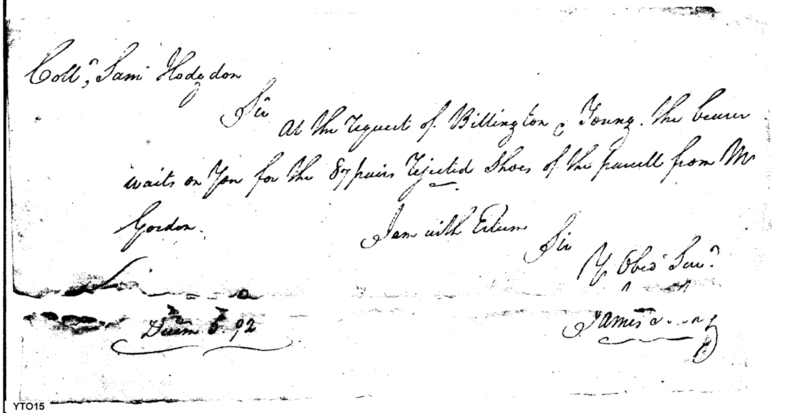 Colln. Sam Hodgdon
Sir
At the request of Billington & Young. the bearer
waits on You for the 87 pairs rejected Shoes of the parcell from Mr
Gordon.
I am with Esteem
Sir
Yr Obed Serv.
Decem 92
James
YTO15